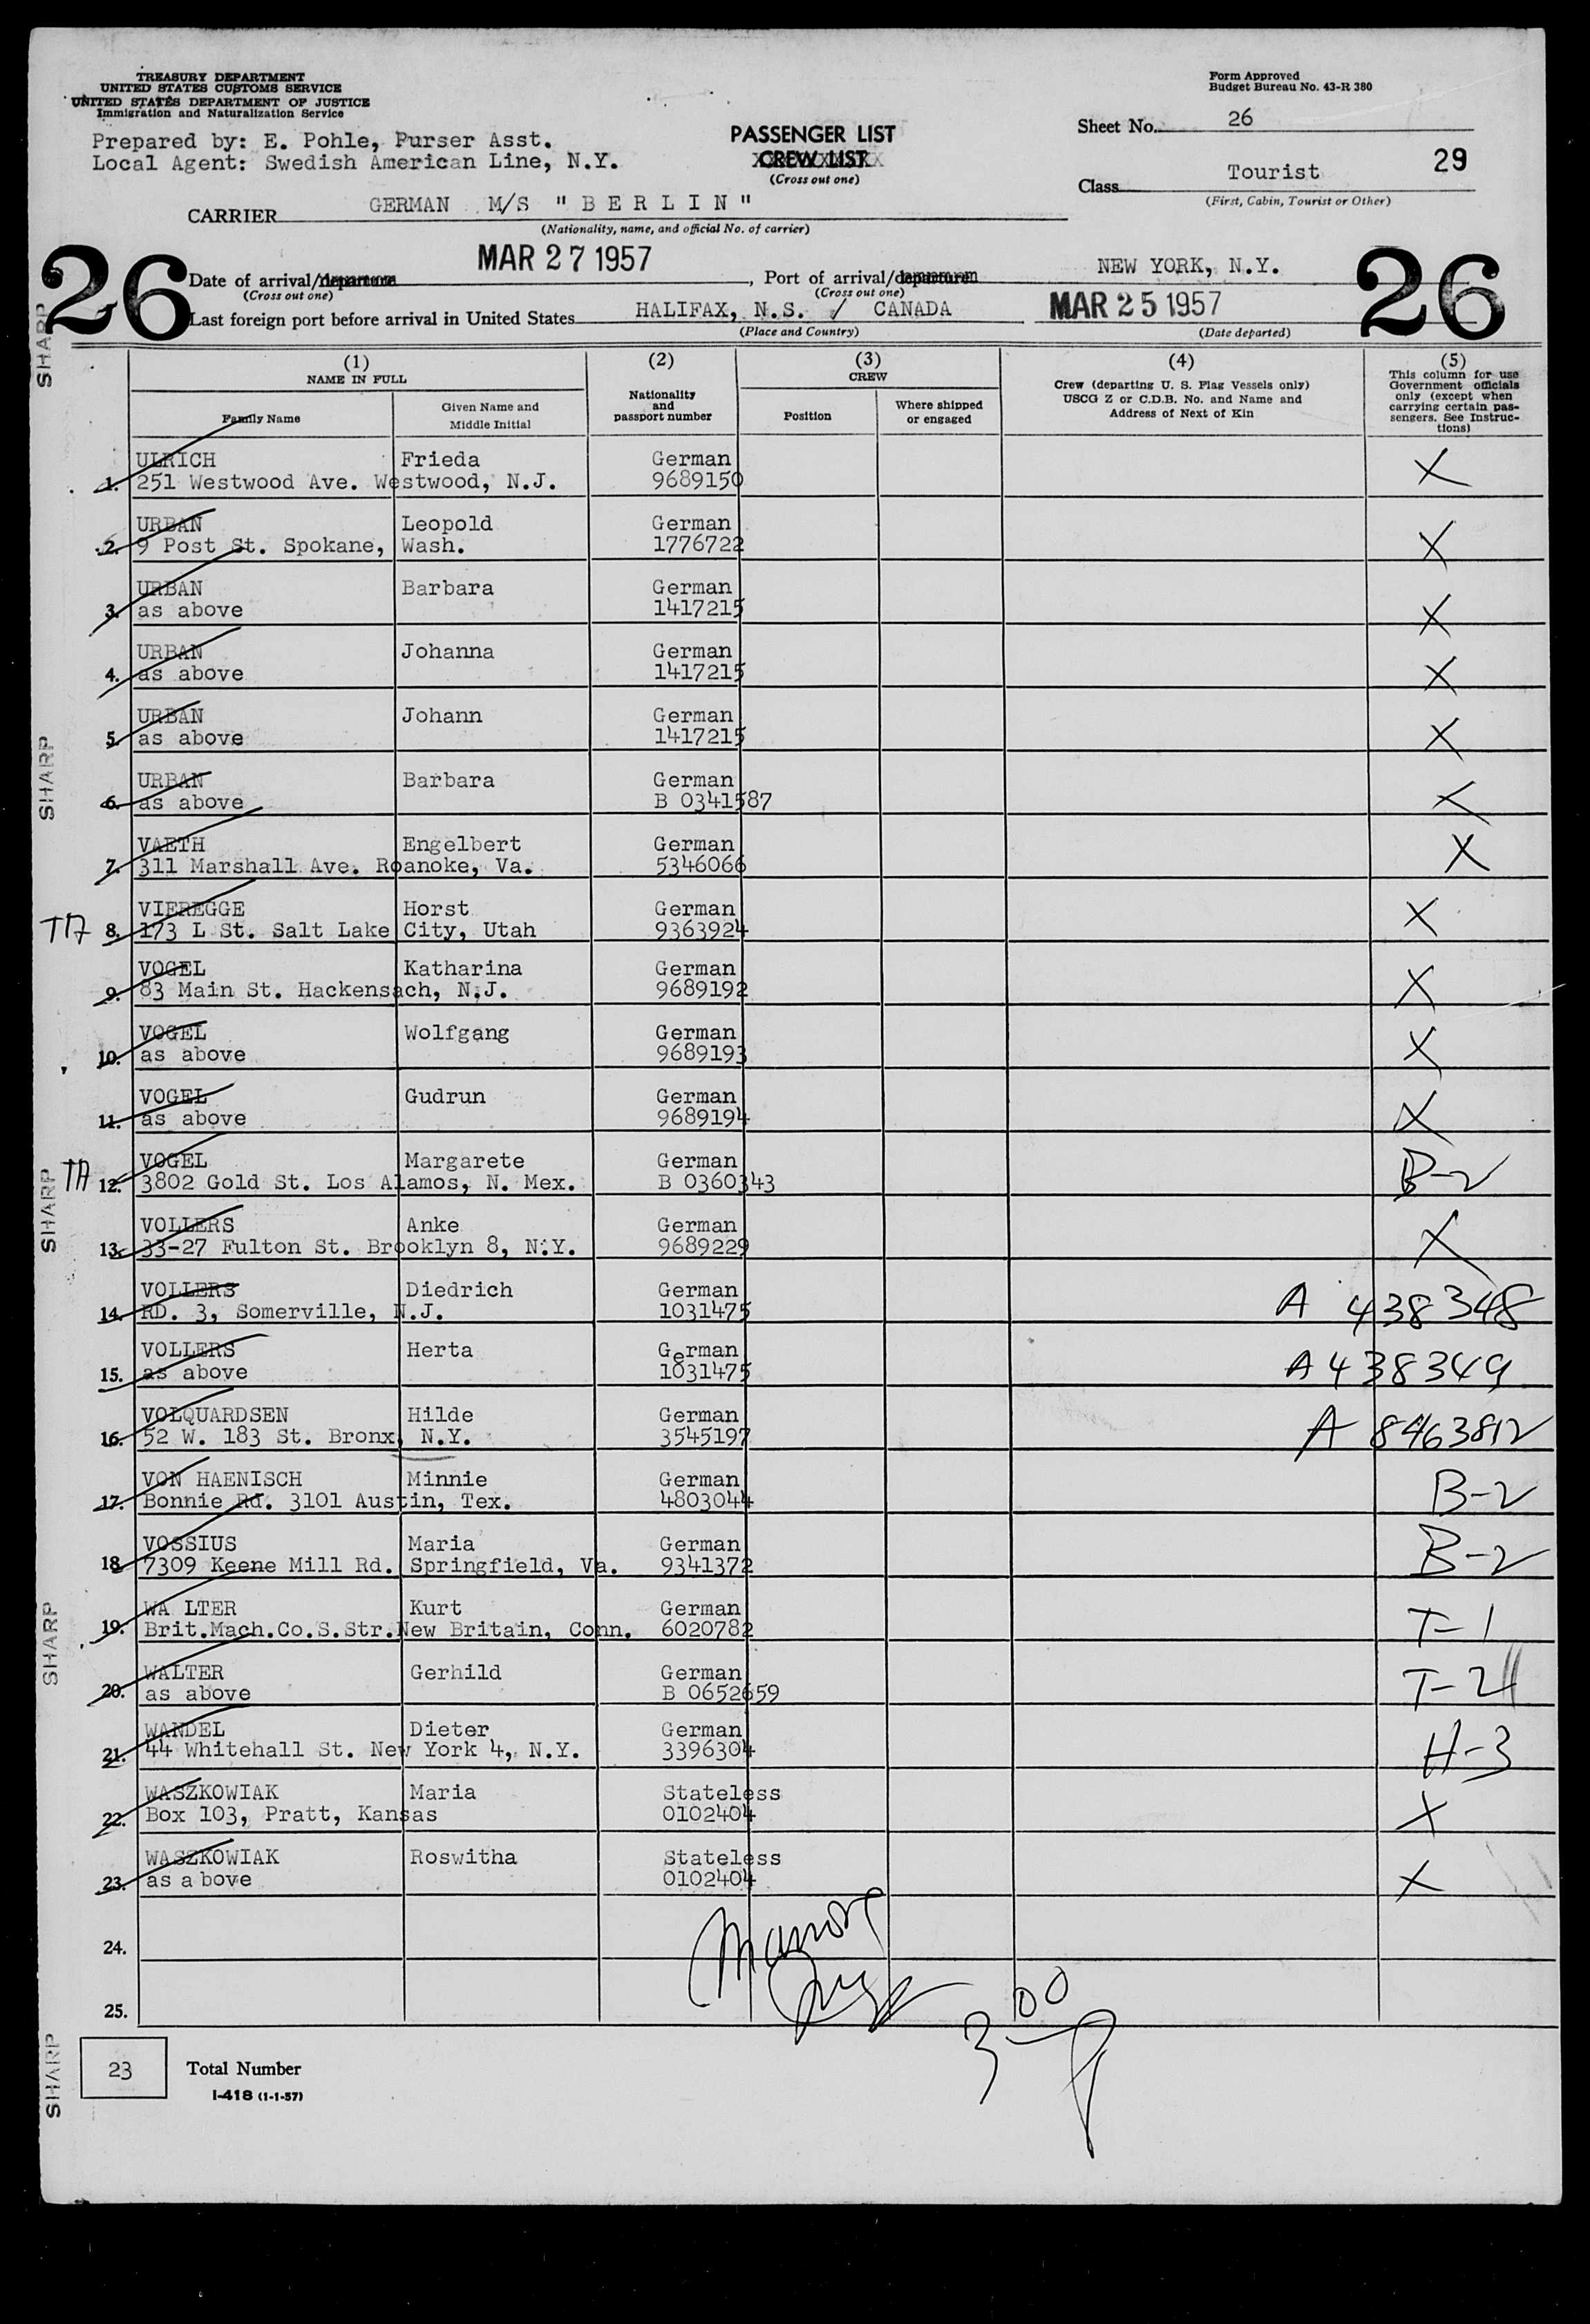 TREASURY DEPARTMENT
UNITED STATES CUSTOMS SERVICE
UNITED STATES DEPARTMENT OF JUSTICE
Immigration and Naturalization Service
Form Approved
Budget Bureau No. 43-R 380
Prepared by: E. Pohle, Purser Asst.
Local Agent: Swedish American Line, N.Y.
PASSENGER LIST
CREW LIST
(Cross out one)
Sheet No. 26
29
Class Tourist
(First, Cabin, Tourist or Other)
CARRIER GERMAN M/S "BERLIN"
(Nationality, name, and official No. of carrier)
26
Date of arrival/departure MAR 27 1957, Port of arrival/departure NEW YORK, N.Y.
(Cross out one) (Cross out one)
26
Last foreign port before arrival in United States HALIFAX, N.S. / CANADA MAR 25 1957
(Place and Country) (Date departed)
(1) (2) (3) (4) (5)
NAME IN FULL
Family Name
Given Name and Middle Initial
Nationality and passport number
CREW
Position
Where shipped or engaged
Crew (departing U. S. Flag Vessels only)
USCG Z or C.D.B. No. and Name and
Address of Next of Kin
This column for use
Government officials
only (except when
carrying certain pas-
sengers. See Instruc-
tions)
ULRICH Frieda German X
1. 251 Westwood Ave. Westwood, N.J. 9689150
URBAN Leopold German X
2. 9 Post St. Spokane, Wash. 1776722
URBAN Barbara German X
3. as above 1417215
URBAN Johanna German X
4. as above 1417215
URBAN Johann German X
5. as above 1417215
URBAN Barbara German X
6. as above B 0341587
VAETH Engelbert German X
7. 311 Marshall Ave. Roanoke, Va. 5346066
VIEREGGE Horst German X
8. 173 L St. Salt Lake City, Utah 9363924
VOGEL Katharina German X
9. 83 Main St. Hackensach, N.J. 9689192
VOGEL Wolfgang German X
10. as above 9689193
VOGEL Gudrun German X
11. as above 9689194
VOGEL Margarete German B-2
TA 12. 3802 Gold St. Los Alamos, N. Mex. B 0360343
VOLLERS Anke German X
13. 33-27 Fulton St. Brooklyn 8, N.Y. 9689229
VOLLERS Diedrich German A 438348
14. RD. 3, Somerville, N.J. 1031475
VOLLERS Herta German A 438349
15. as above 1031475
VOLQUARDSEN Hilde German A 8463812
16. 52 W. 183 St. Bronx, N.Y. 3545197
VON HAENISCH Minnie German B-2
17. Bonnie Rd. 3101 Austin, Tex. 4803044
VOSSIUS Maria German B-2
18. 7309 Keene Mill Rd. Springfield, Va. 9341372
WA LTER Kurt German T-1
19. Brit.Mach.Co.S.Str.New Britain, Conn. 6020782
WALTER Gerhild German T-2
20. as above B 0652659
WANDEL Dieter German H-3
21. 44 Whitehall St. New York 4, N.Y. 3396304
WASZKOWIAK Maria Stateless X
22. Box 103, Pratt, Kansas 0102404
WASZKOWIAK Roswitha Stateless X
23. as a bove 0102404
24.
25.
3 00
23 Total Number
I-418 (1-1-57)
SHARP
SHARP
SHARP
SHARP
SHARP